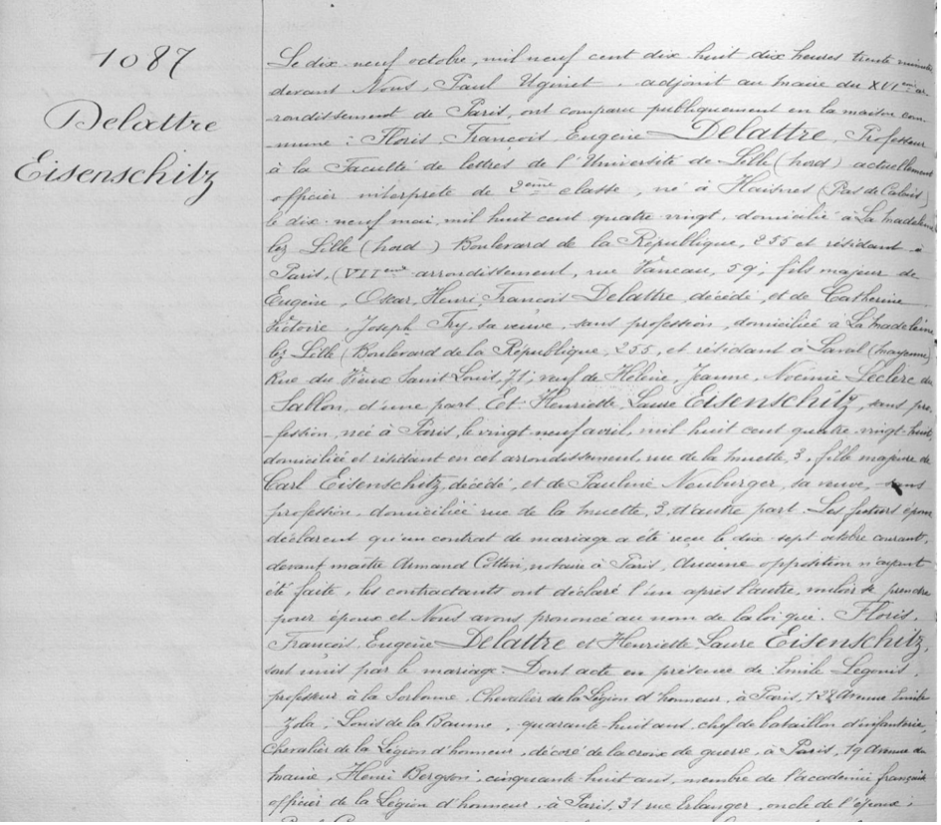 1087
Delattre
Eisenschitz
Le dix neuf octobre, mil neuf cent dix huit dix heures trente minutes
devant Nous, Paul Uginet, adjoint au maire du XVIeme ar-
rondissement de Paris, ont comparu publiquement en la maison com-
mune : Floris, François, Eugène Delattre, Professeur
à la Faculté de lettres de l'Université de Lille (nord) actuellement
officier interprète de 2eme classe, né à Haisnes (Pas de Calais)
le dix neuf mai, mil huit cent quatre vingt, domicilié à La madeleine
lez Lille (nord) Boulevard de la République, 255 et résidant à
Paris, (VIIeme arrondissement, rue Vaneau, 59; fils majeur de
Eugène, Oscar, Henri, François Delattre, décédé, et de Catherine
Victoire, Joseph Try, sa veuve, sans profession, domiciliée à La madeleine
lez Lille (Boulevard de la République, 255, et résidant à Laval (mayenne)
Rue du Vieux Saint Louis, 71; veuf de Hélène, Jeanne, Noémie Leclerc du
Sablon, d'une part. Et Henriette Laure Eisenschitz, sans pro-
-fession, née à Paris, le vingt neuf avril, mil huit cent quatre vingt huit
domiciliée et résidant en cet arrondissement, rue de la muette, 3, fille majeure de
Carl Eisenschitz, décédé, et de Pauline Neuburger, sa veuve, sans
profession, domiciliée rue de la muette, 3, d'autre part. Les futurs époux
déclarent qu'un contrat de mariage a été reçu le dix sept octobre courant,
devant maître Armand Cottin, notaire à Paris, Aucune opposition n'ayant
été faite, les contractants ont déclaré l'un après l'autre, vouloir se prendre
pour époux et Nous avons prononcé au nom de la loi que Floris,
François, Eugène Delattre et Henriette Laure Eisenschitz,
sont unis par le mariage. Dont acte en présence de : Emile Legouis,
professeur à la Sorbonne, Chevalier de la Légion d'honneur, à Paris, Avenue Emile
Zola ; Louis de la Baume, quarante huit ans, chef de bataillon d'infanterie,
Chevalier de la Légion d'honneur, décoré de la croix de guerre, à Paris, 19 Avenue du
maine, Henri Bergson : cinquante huit ans, membre de l'académie française
officier de la Légion d'honneur, à Paris, 31 rue Erlanger, oncle de l'épouse ;